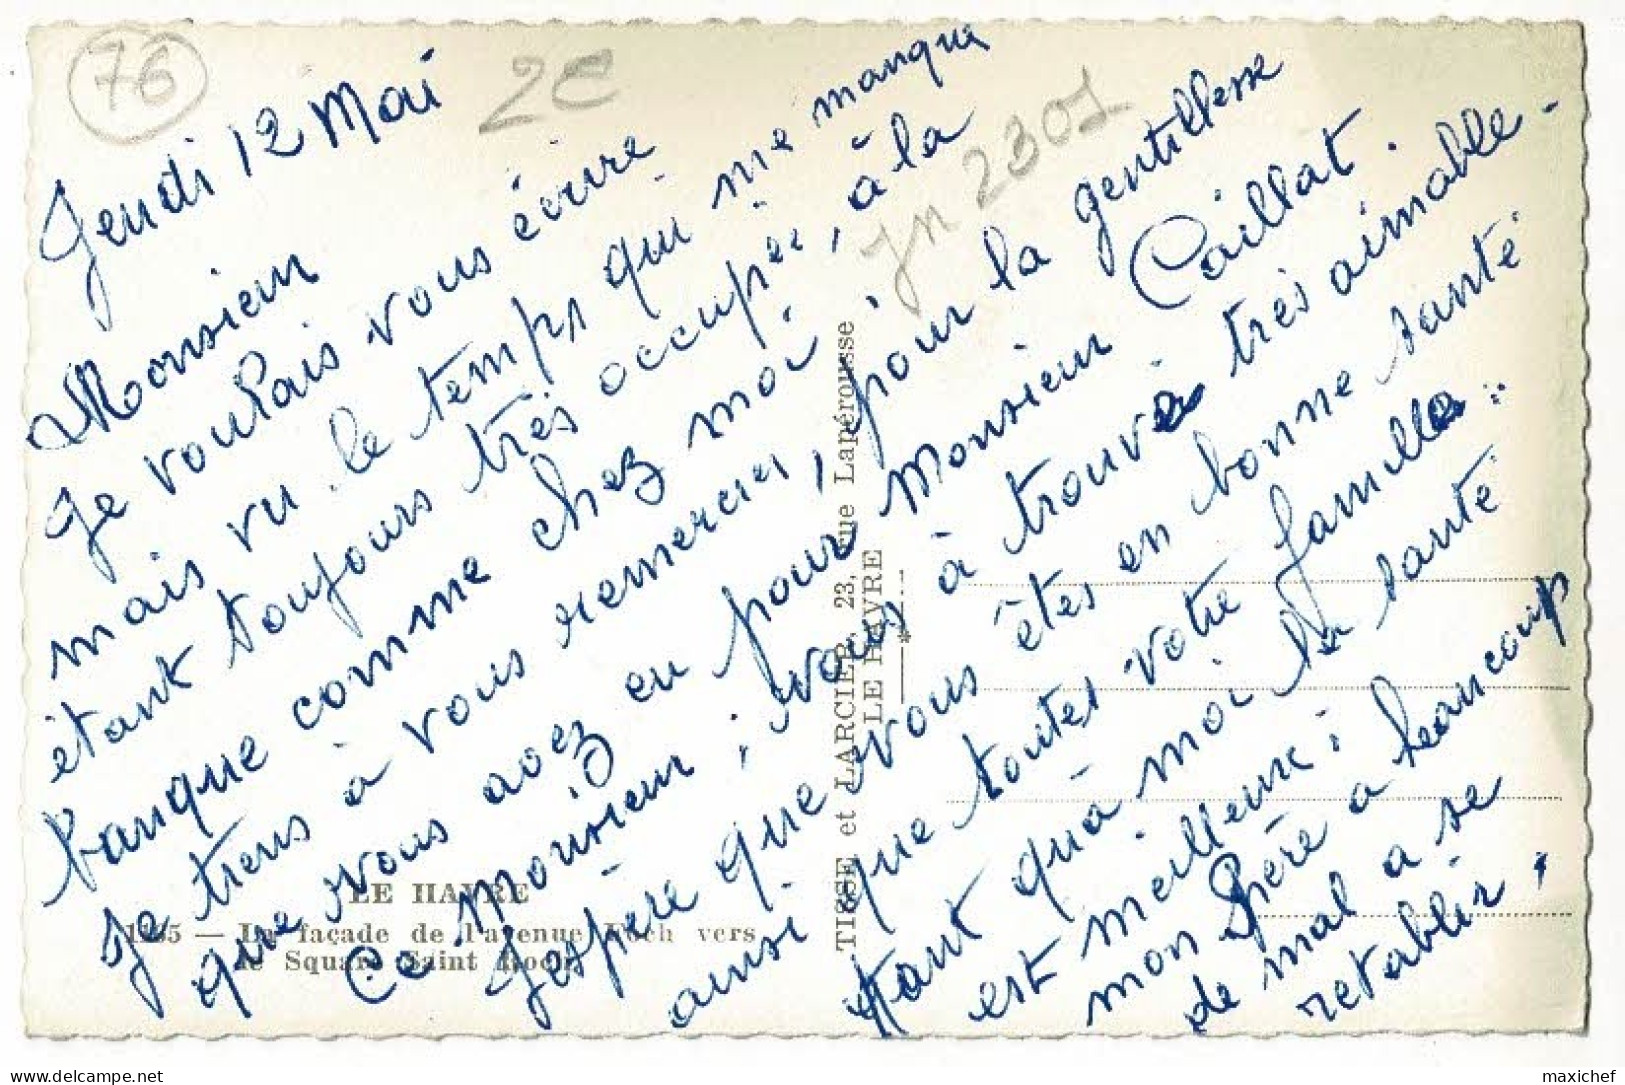 76
2€
JN 2301
Jeudi 12 Mai
Monsieur
Je voulais vous écrire
mais vu le temps qui me manque
étant toujours très occupée, à la
banque comme chez moi ;
Je tiens à vous remercier, pour la gentillesse
que vous avez eu pour Monsieur Caillat.
Ce Monsieur, vous à trouvé très aimable.
J'espère que vous êtes en bonne santé
ainsi que toutes votre familles.
étant qu'à moi la santé
est meilleure ;
mon Père a beaucoup
de mal a se
retablir.
LE HAVRE
1185 — La façade de l'avenue Foch vers
le Square Saint Roch
TISSE et LARCIER, 23, rue Lapérousse
LE HAVRE
*
delcampe.net
maxichef